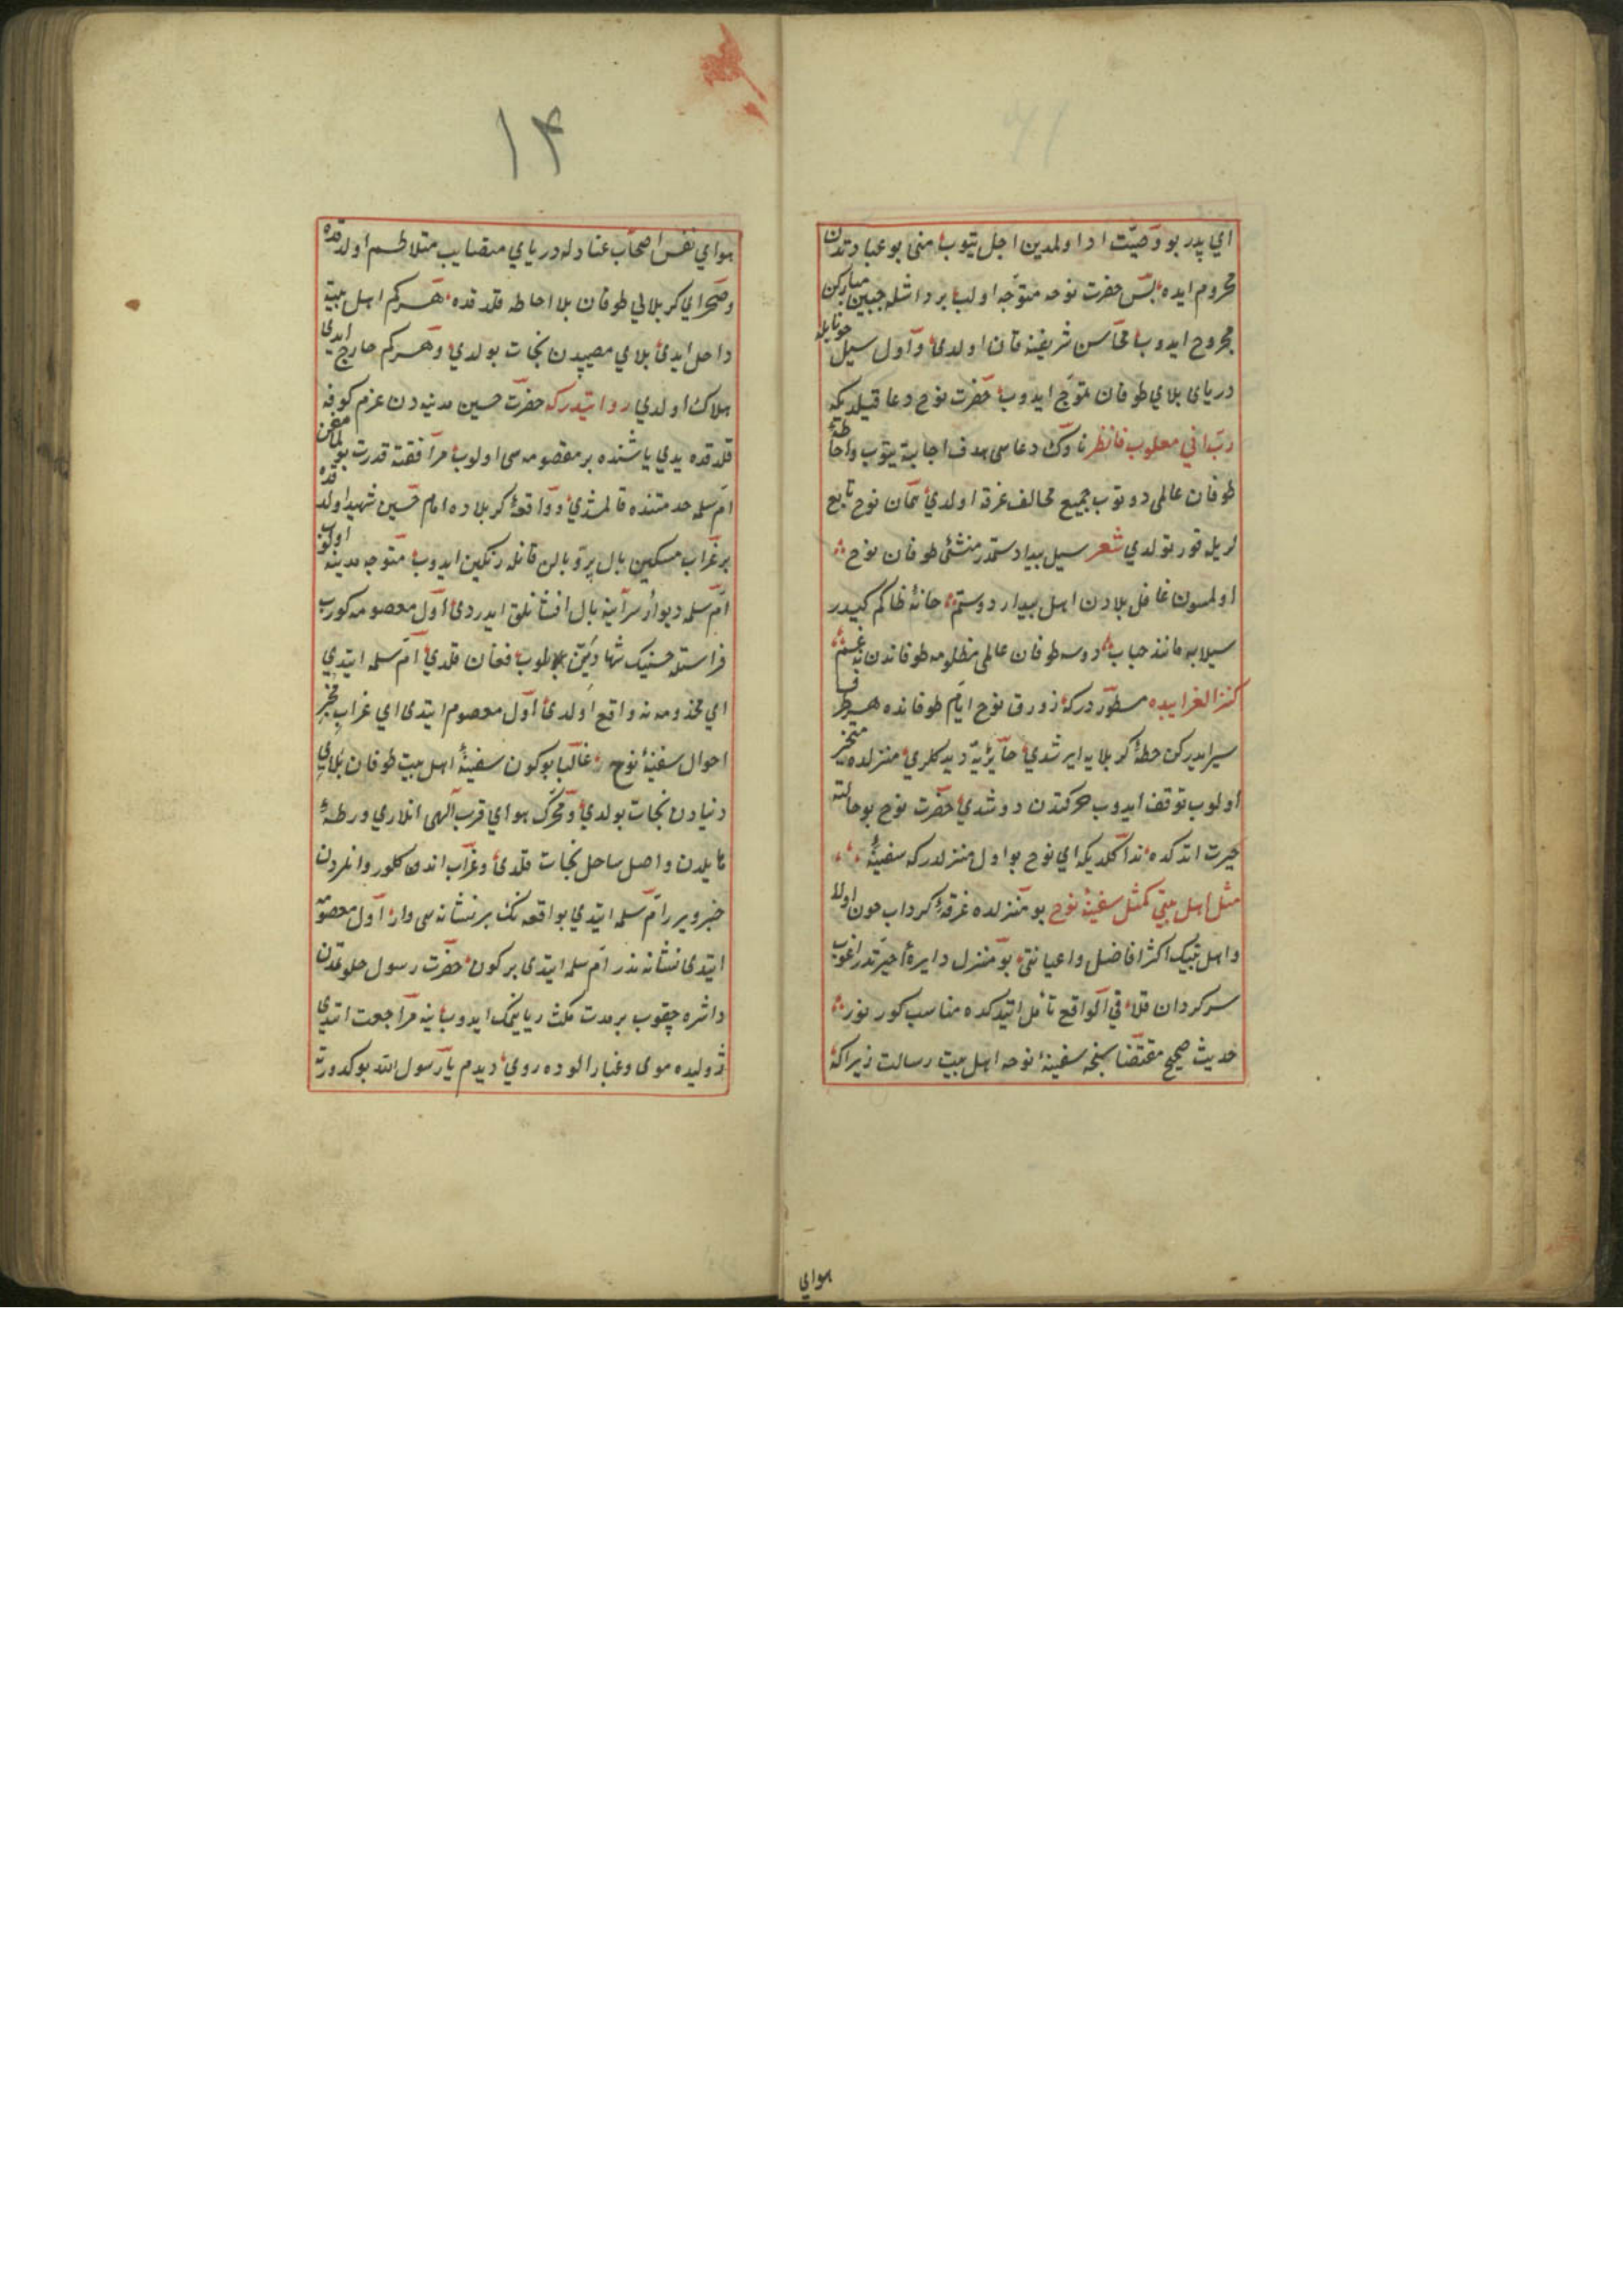 اي پدر بو وصيّت ادا اولمدين اجل يتوب منى بو عبادتدن
محروم ايده بس حضرت نوحه متوجه اولب بر داشله جبين مباركن
مجروح ايدوب محاسن شريفنه قان اولدى و اول سيل خونابله
درياى بلاي طوفان تموّج ايدوب حضرت نوح دعا قيلديكه
ربّ اني مغلوب فانظر ناوك دعاسى هدف اجابته يتوب و احاطهٔ
طوفان عالمى دوتوب جميع مخالف غرق اولدي همان نوح تابع
لريله قورتولدي شعر سيل بيداد ستمدر منشئى طوفان نوح
اولمسون غافل بلادن اهل بيداد و ستم خانهٔ ظالم كيدر
سيلابه مانند حباب دوسه طوفان عالمى مظلومه طوفاندن نه غم
كنز الغرايبده مسطوردركه زورق نوح ايام طوفانده هر طرف
سير ايدركن خطهٔ كربلايه ايرشدي منزلده متحيّر
اولوب توقف ايدوب حركتدن دوشدي حضرت نوح بو حالته
حيرت اتدكده ندا كلديكه اي نوح بو اول منزلدركه سفينهٔ
مثل اهل بيتى كمثل سفينة نوح بو منزلده غرقهٔ كرداب خون اولا
و اهل بيتك اكثر افاضل و اعيانى بو منزل دايرهٔ حيرتده
سركردان قلا في الواقع تأمل اتيدكده مناسب كورنور
حديث صحيح مقتضاسنجه سفينهٔ نوحه اهل بيت رسالت زيراكه
هواي
١٤
هواي نفس اصحاب عنادله درياي مصايب متلاطم اولدقده
و صحراي كربلايى طوفان بلا احاطه قلدقده هركم اهل بيته
داخل ايدى بلاي مصيبدن نجات بولدي و هركم خارج ايدي
هلاك اولدي روايتدركه حضرت حسين مدينه دن عزم كوفه
قلدقده يدي ياشنده بر معصومه سى اولوب مرافقته قدرت بولمامغن
ام سلمه خدمتنده قالمشدي و واقعهٔ كربلاده امام حسين شهيد اولدقده
بر غراب مسكين بال پر و بالن قانله رنكين ايدوب متوجه مدينه اولوب
ام سلمه ديوار سراينه بال افشانلق ايدردى اول معصومه كورب
فراستله حسينك شهادتين بلوب فغان قلدي ام سلمه ايتدي
اي مخدومه نه واقع اولدى اول معصوم ايتدى اي غراب مخبر
احوال سفينهٔ نوح غالبا بوكون سفينهٔ اهل بيت طوفان بلاي
دنيادن نجات بولدي و محرّك هواي قرب الهى انلاري ورطهٔ
هايلدن واصل ساحل نجات قلدى و غراب اندن كلور و انلردن
خبر ويرر ام سلمه ايتدي بو واقعه نك بر نشانه سى وار اول معصومه
ايتدى نشانه ندر ام سلمه ايتدى بركون حضرت رسول خلوتمدن
داشره چقوب بر مدت مكث ايدوب ينه مراجعت اتدي
ژوليده موى و غبار الوده روي ديدم يا رسول الله بو كدورت